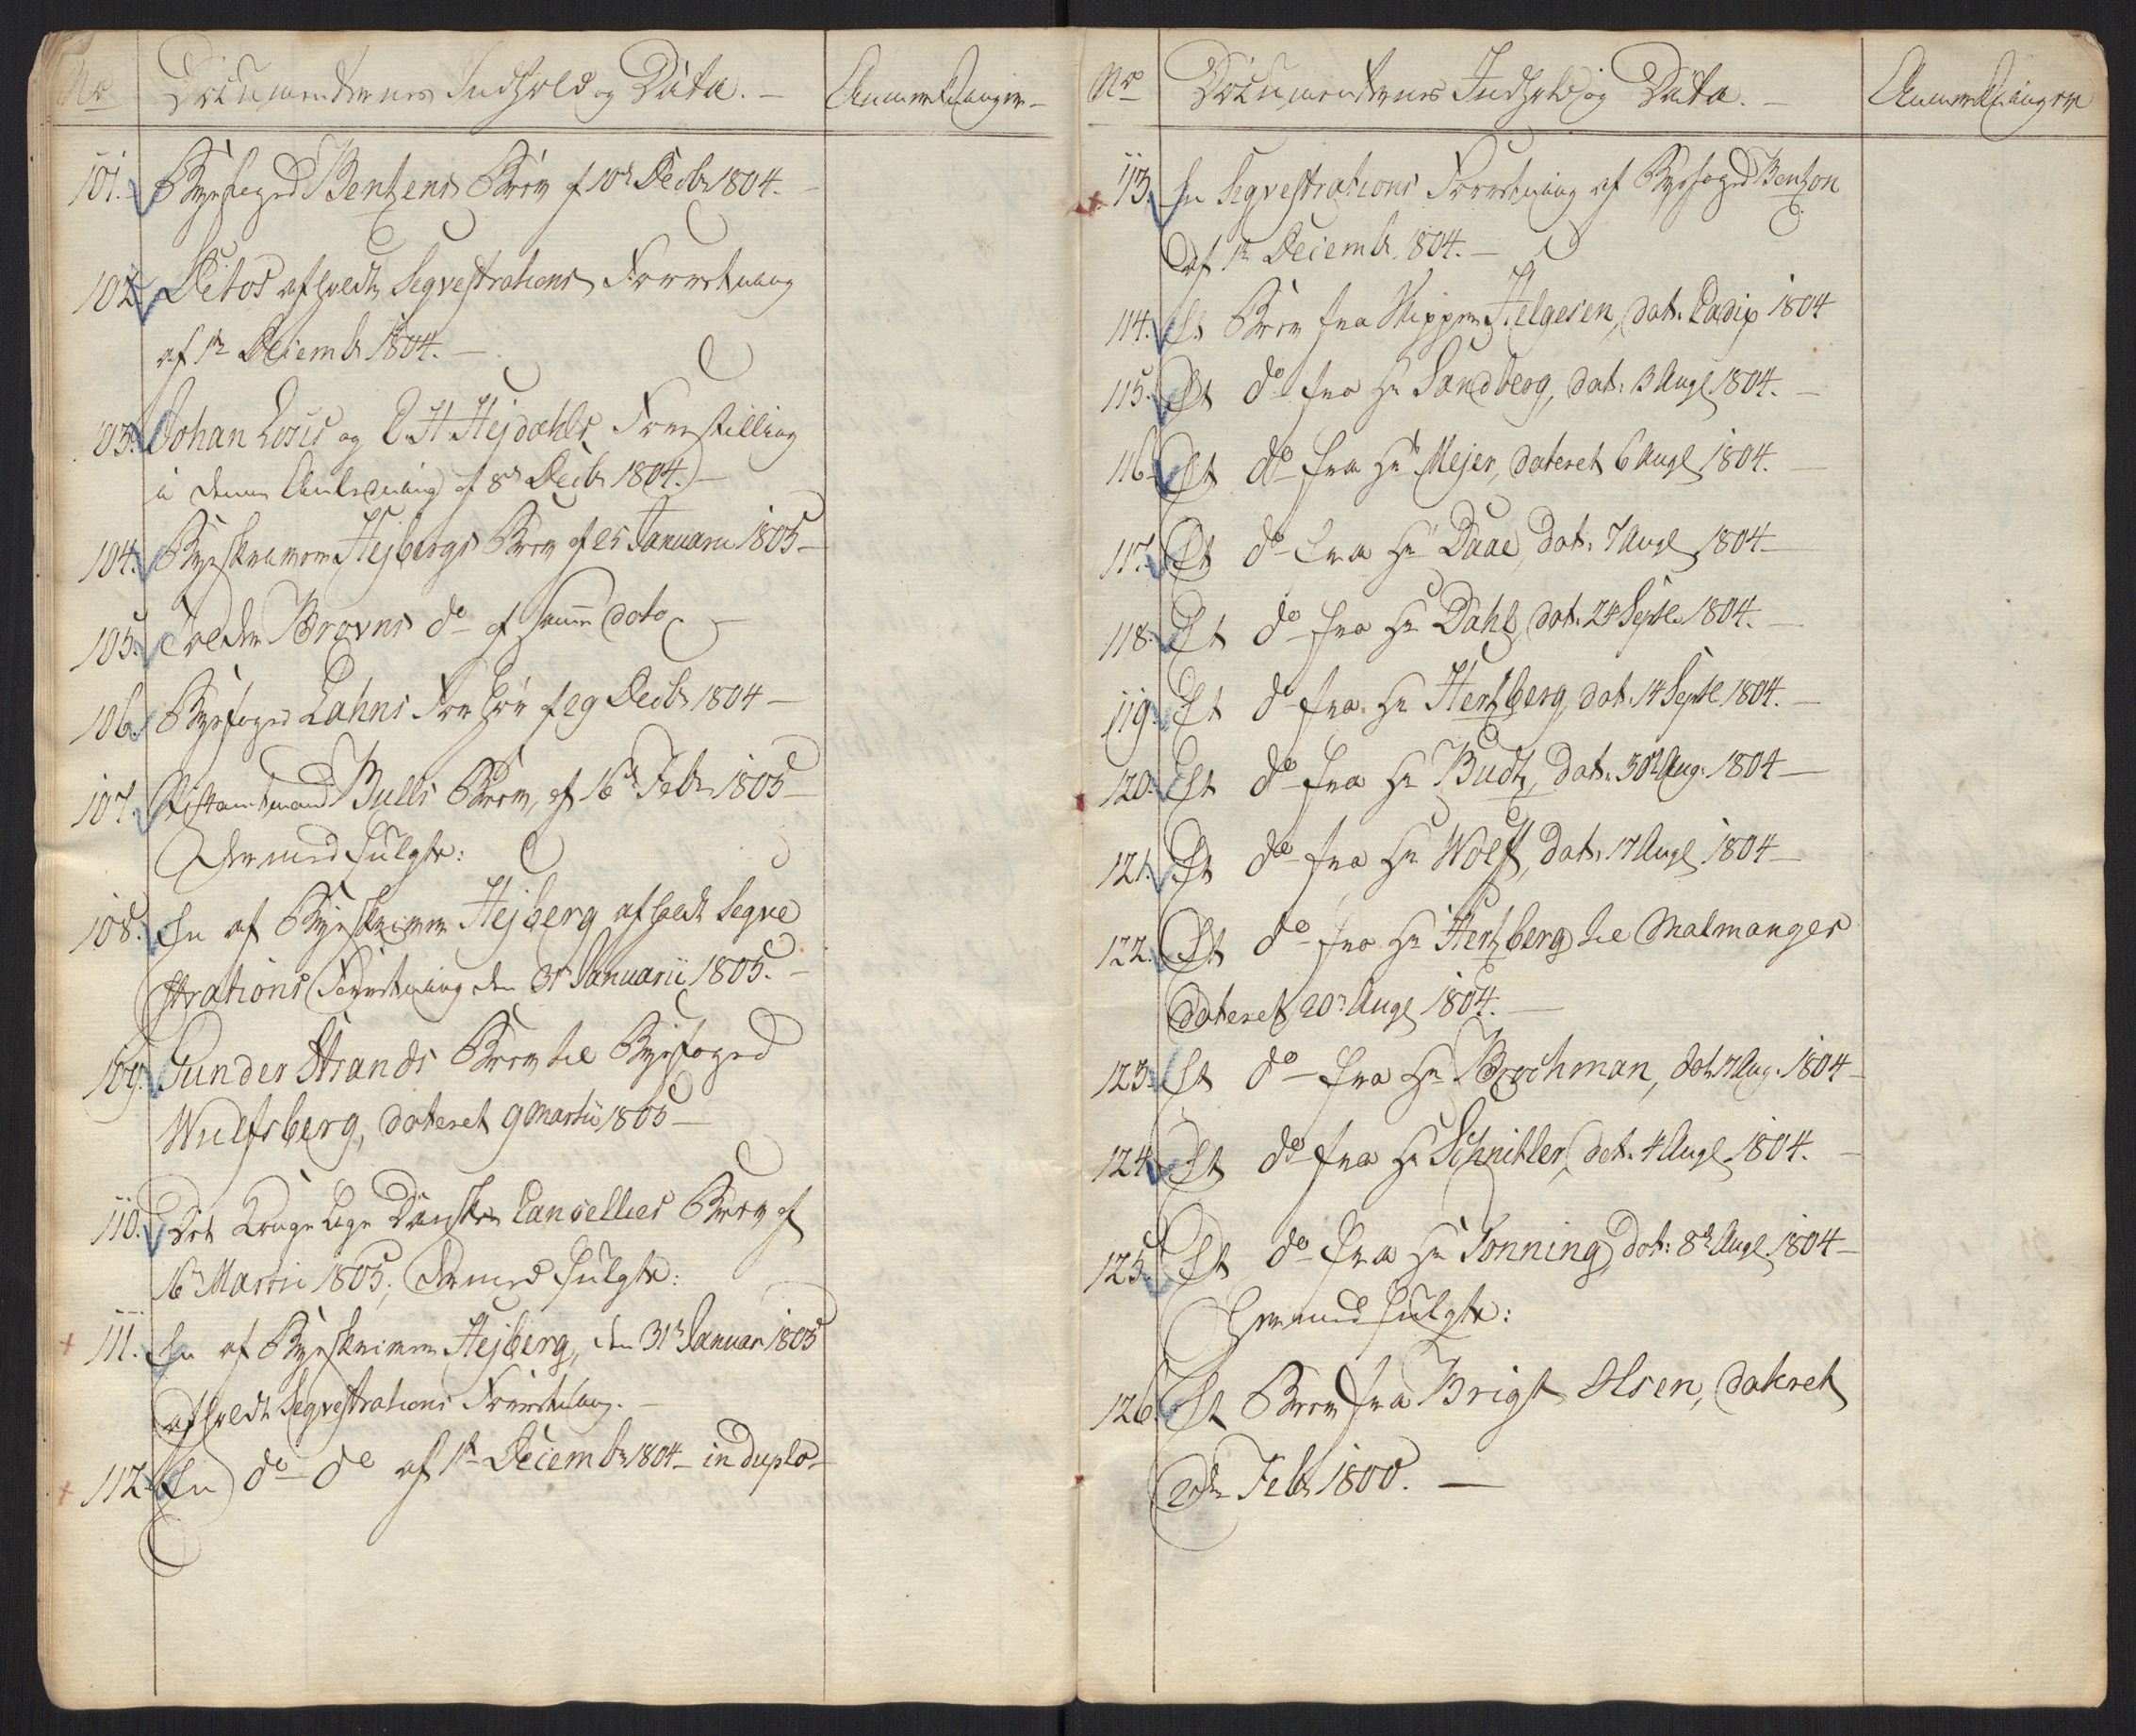 No Documenternes Indhold og Data. – Anmerkninger –
101. Byefoged Bentzens Brev af 10de Decbr 1804. –
102. Ditos afholdte Seqvestrations Forretning
af 1te Decembr 1804. –
103. Johan Loses og C. H. Hejdahls Forestilling
i denne Anledning af 8de Decbr 1804. –
104. Byeskriver Hejbergs Brev af 25 Januarii 1805 –
105. Tolder Brovns do af samme dato –
106. Byefoged Lahns Forhør af 29 Decbr 1804 –
107. Stiftamtmand Bulls Brev, af 16de Febr 1805 –
Hermed fulgte:
108. En af Byeskriver Hejberg afholdt Seqve
strations Forretning den 31te Januarii 1805. –
109. Gunder Strands Brev til Byefoged
Wulfsberg, dateret 9 Martii 1805 –
110. Det Kongelige Danske Cancellies Brev af
16de Martii 1805, Hermed fulgte:
111. En af Byeskriver Hejberg, den 31te Januar 1805
afholdt Seqvestrations Forretning. –
112. En do do af 1te Decembr 1804 – in duplo –
No Documenternes Indhold og Data. – Anmerkninger
113. En Seqvestrations Forretning af Byefoged Bentzon
af 1te Decembr 1804. –
114. Et Brev fra Skipper Helgesen, dat. Cadix 1804
115. Et do fra Hr Sandberg, dat. 3 Augt 1804. –
116. Et do fra Hr Mejer, dateret 6 Augt 1804. –
117. Et do fra Hr Daae, dat. 7 Augt 1804 –
118. Et do fra Hr Dahl, dat. 24 Septbr 1804. –
119. Et do fra Hr Hertzberg, dat. 14 Septbr 1804. –
120. Et do fra Hr Budtz, dat. 30te Aug. 1804 –
121. Et do fra Hr Wolff, dat. 17 Augt 1804 –
122. Et do fra Hr Hertzberg til Malmanger
dateret 20de Augt 1804. –
123. Et do fra Hr Brochman, dat. 7 Aug. 1804 –
124. Et do fra Hr Schnitler, dat. 4 Augt 1804. –
125. Et do fra Hr Tonning, dat: 8de Augt 1804 –
Hermed fulgte:
126. Et Brev fra Brigt Olsen, dateret
2den Febr 1800. –